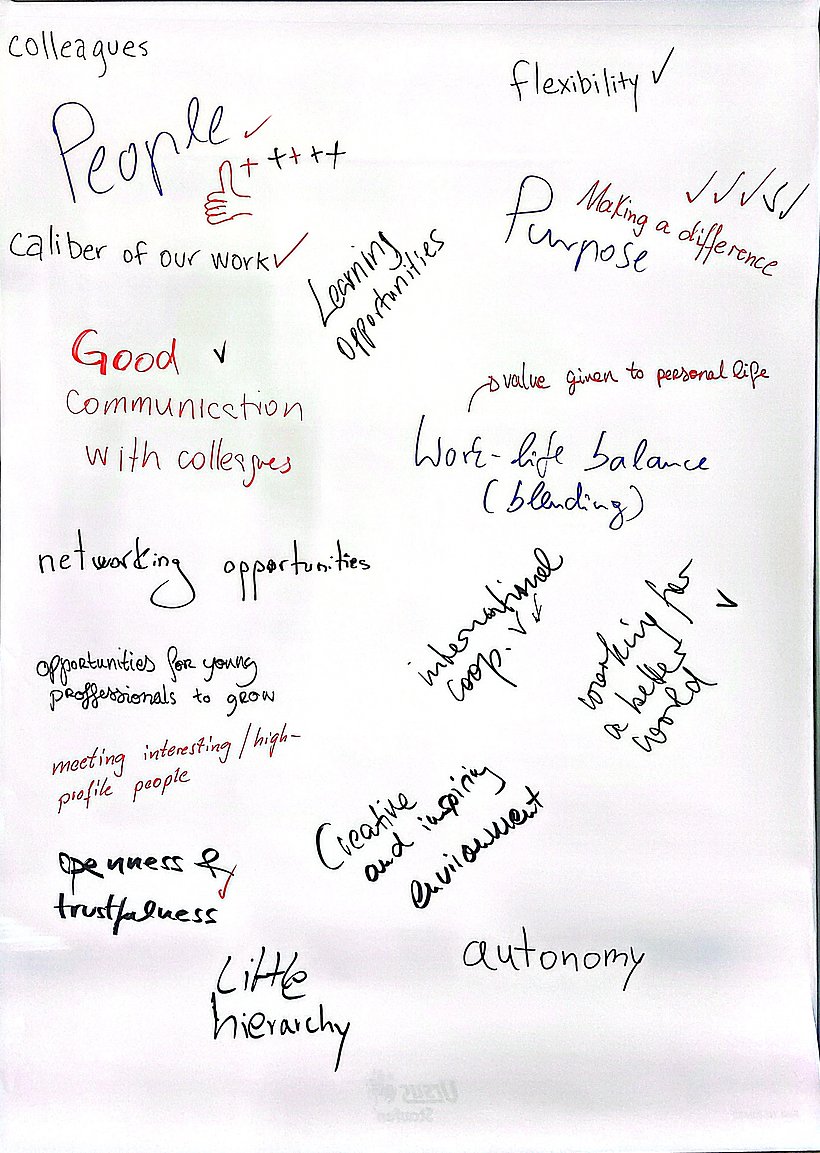 colleagues
flexibility ✓
People ✓
+ + + + +
Purpose
Making a difference
✓ ✓ ✓ ✓ ✓
caliber of our work ✓
Learning
opportunities
Good ✓
communication
with colleagues
value given to personal life
Work-life balance
(blending)
networking opportunities
international
coop. ✓ ✓
working for
a better
world ✓
opportunities for young
proffessionals to grow
meeting interesting / high-
profile people
Creative
and inspiring
environment
openness &
trustfulness ✓
autonomy
Little
hierarchy
Ursus
Staufen